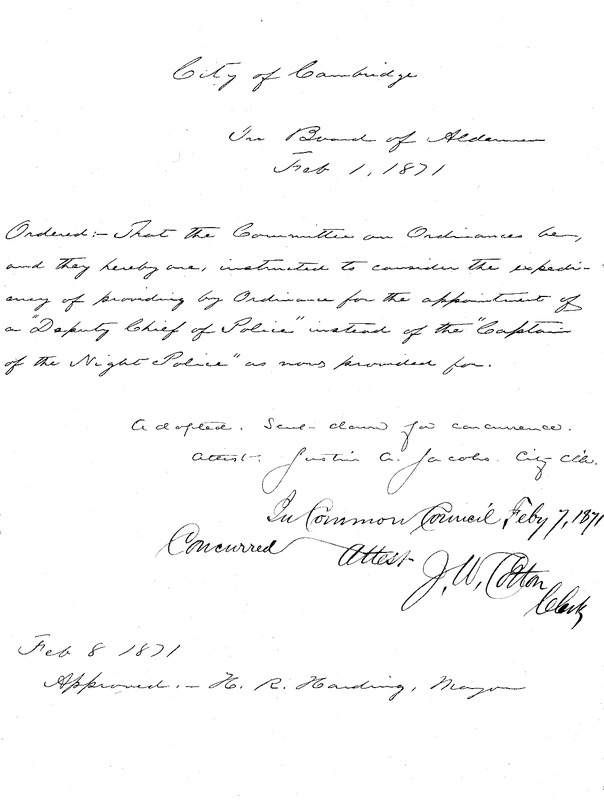 City of Cambridge
In Board of Aldermen
Feb 1, 1871
Ordered:- That the Committee on Ordinances be,
and they hereby are, instructed to consider the expedi-
ency of providing by Ordinance for the appointment of
a "Deputy Chief of Police" instead of the "Captain
of the Night Police" as now provided for.
Adopted. Sent down for concurrence.
Attest. Justin A. Jacobs. City Clk.
In Common Council Feby 7, 1871
Concurred Attest J. W. Cotton
Clerk
Feb 8 1871
Approved.- H. R. Harding, Mayor